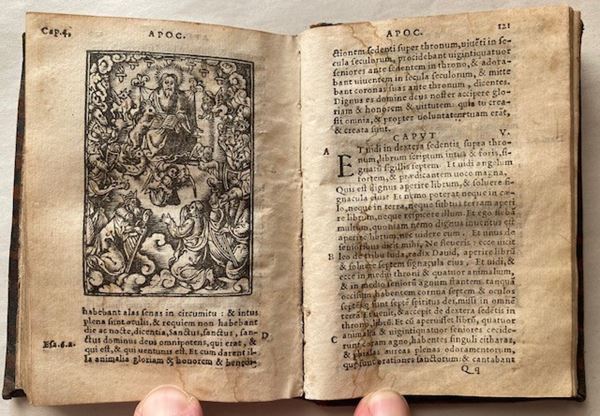 Cap.4,
APOC.
habebant alas senas in circumitu : & intus
plena sunt oculis, & requiem non habebant
die ac nocte, dicentia, Sanctus, sanctus, san-
Esa.6.a.
ctus dominus deus omnipotens, qui erat, &
D
qui est, & qui uenturus est. Et cum darent il-
la animalia gloriam & honorem & benedi-
APOC.
121
ctionem sedenti super thronum, uiuēti in se-
cula seculorum, procidebant uigintiquatuor
seniores ante sedentem in throno, & adora-
bant uiuentem in secula seculorum, & mitte
bant coronas suas ante thronum, dicentes,
Dignus es domine deus noster accipere glo-
riam & honorem & uirtutem: quia tu crea-
sti omnia, & propter uoluntatem tuam erāt,
& creata sunt.
CAPVT V.
A
ET uidi in dextera sedentis supra thro-
num, librum scriptum intus & foris, si-
gnatū sigillis septem. Et uidi angelum
fortem, & prædicantem uoce magna,
Quis est dignus aperire librum, & soluere si-
gnacula eius? Et nemo poterat neque in cæ-
lo, neque in terra, neque subtus terram aperi
re librum, neque respicere illum. Et ego flebā
multum, quoniam nemo dignus inuentus est
aperire librum, nec uidere eum. Et unus de
senioribus dixit mihi, Ne fleueris: ecce uicit
B
leo de tribu Iuda, radix Dauid, aperire librū
& soluere septem signacula eius, Et uidi, &
ecce in medio throni & quatuor animalium,
& in medio seniorū agnum stantem, tanquā
occisum, habentem cornua septem & oculos
septem: qui sunt septē spiritus dei, missi in omnē
terrā. Et uenit, & accepit de dextera sedētis in
throno, librū. Et cū aperuisset librū, quatuor
animalia & uigintiquatuor seniores cecide-
C
runt coram agno, habentes singuli citharas,
& phialas aureas plenas odoramentorum,
quæ sunt orationes sanctorum: & cantabant
Qq